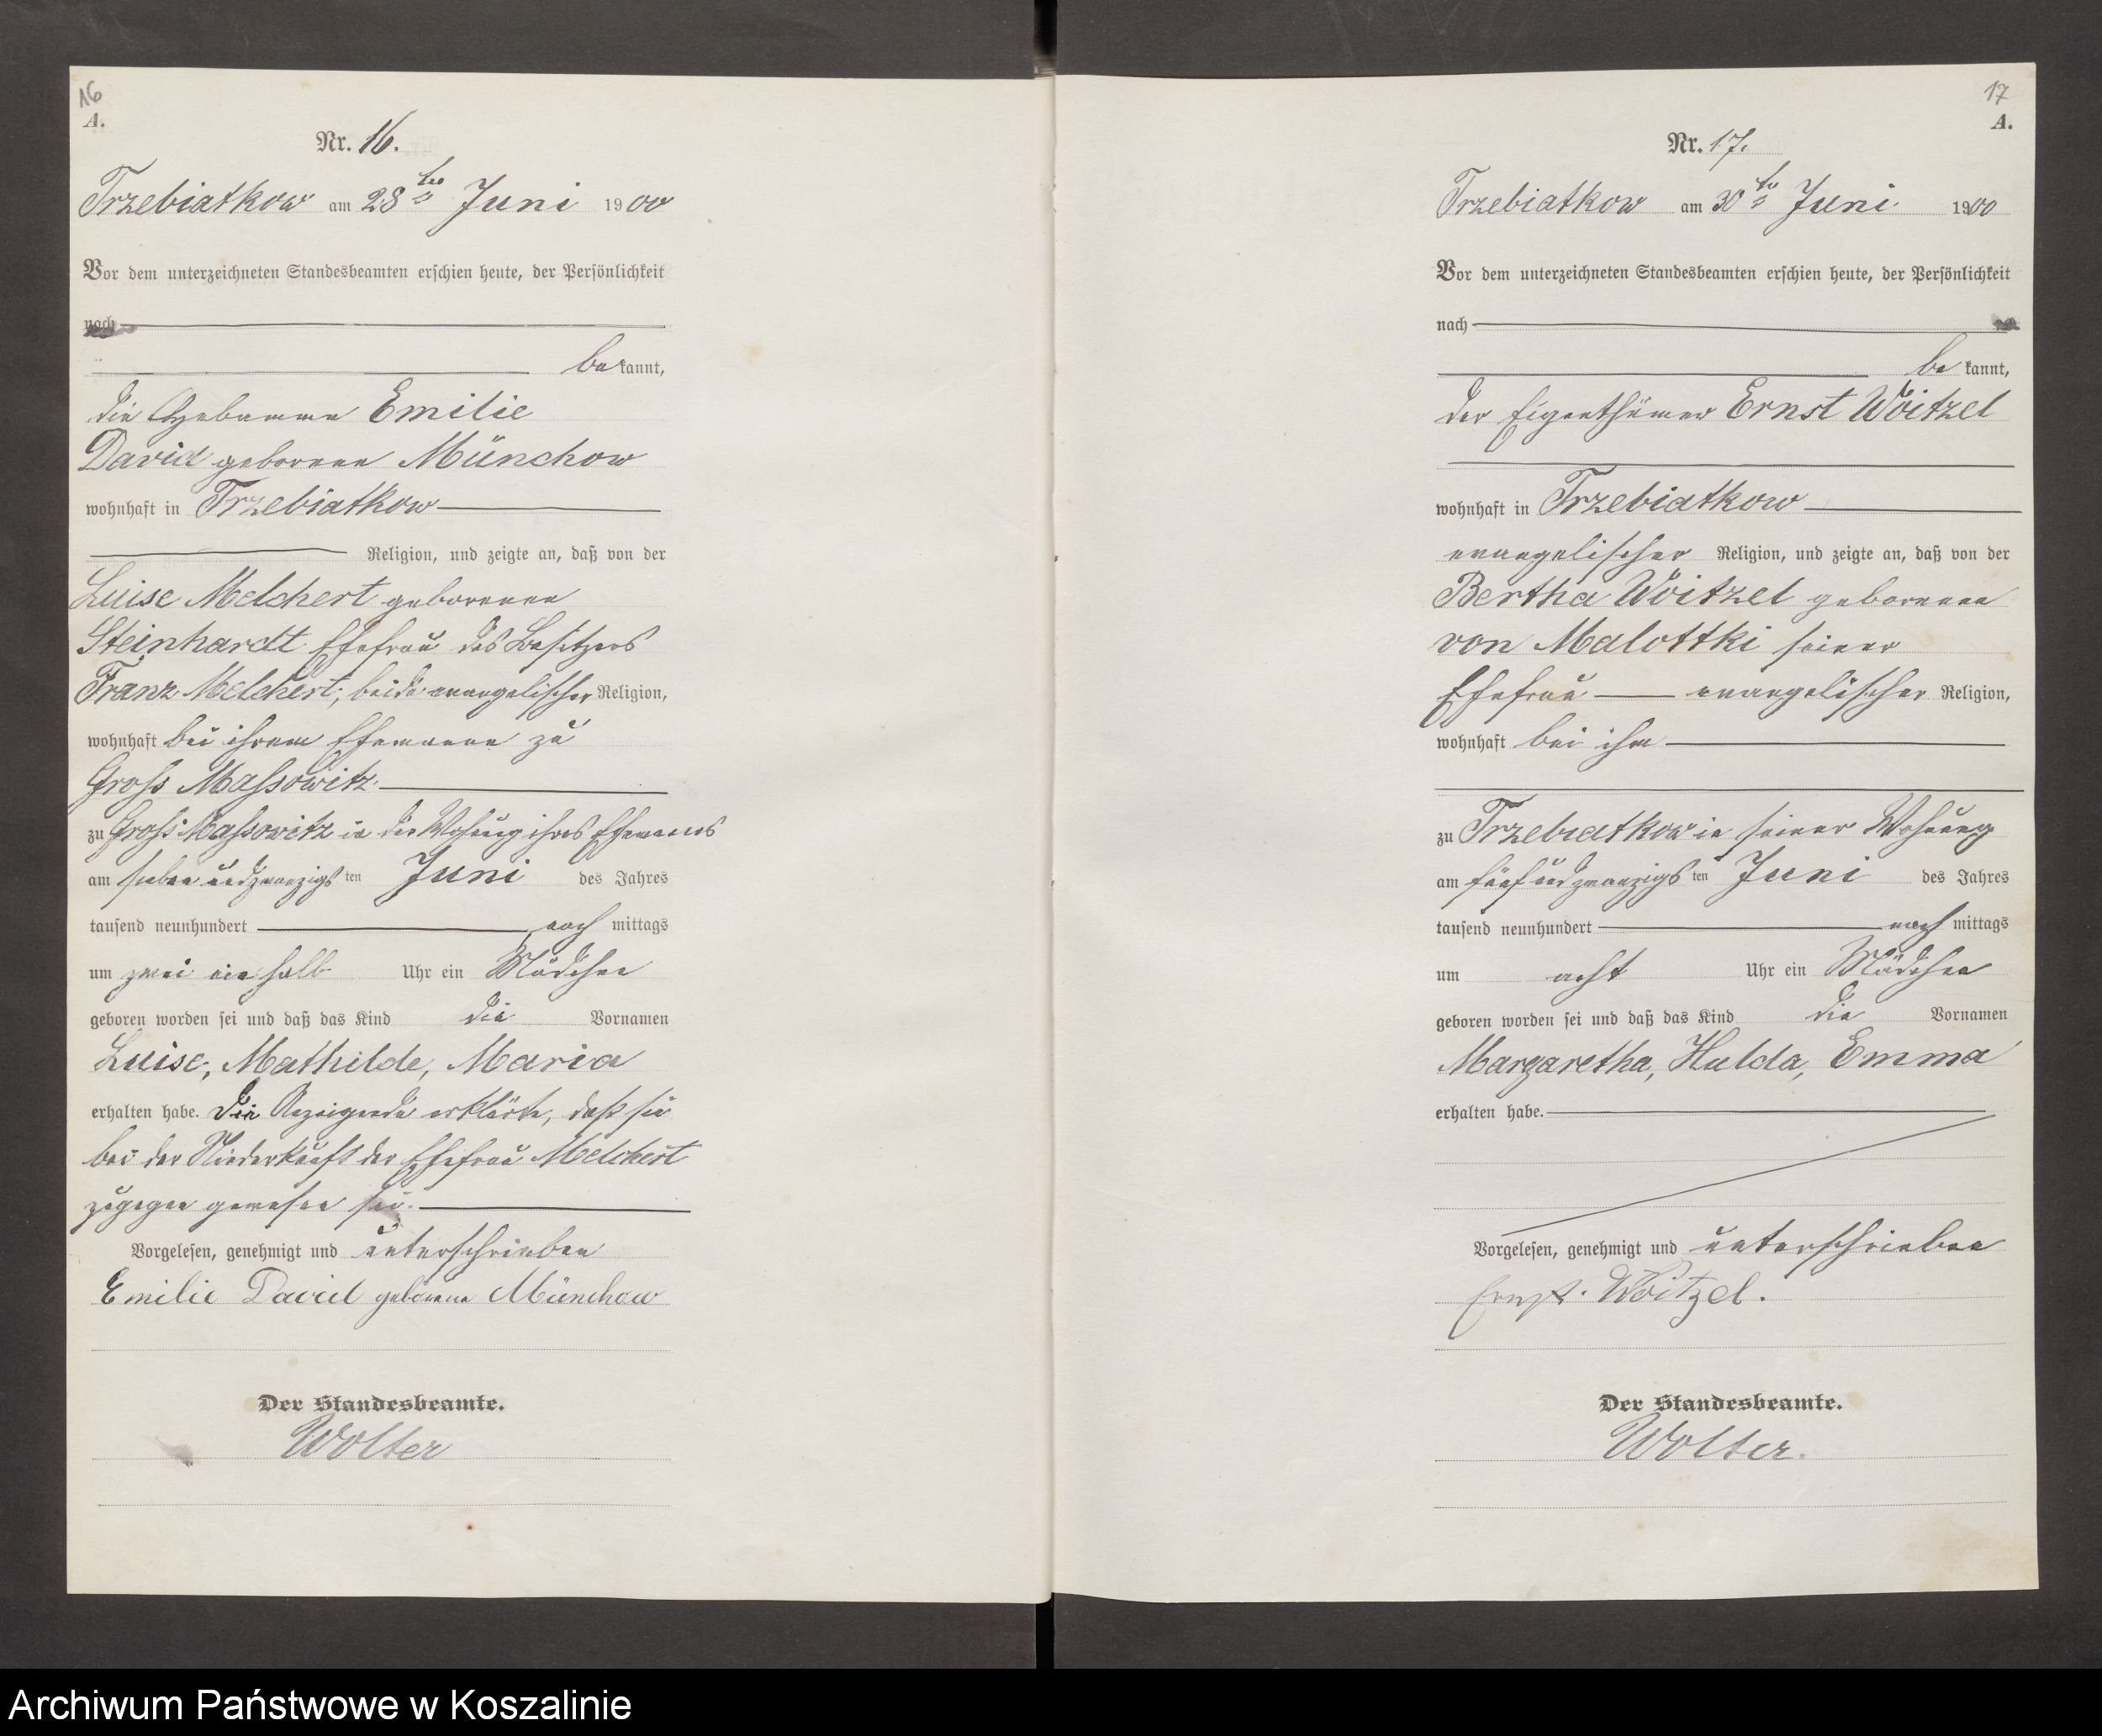 16
A.
Nr. 16.
Trzebiatkow am 28ten Juni 1900
Vor dem unterzeichneten Standesbeamten erschien heute, der Persönlichkeit
nach
bekannt,
die Hebamme Emilie
David geborene Münchow
wohnhaft in Trzebiatkow
Religion, und zeigte an, daß von der
Luise Melchert geborenen
Steinhardt Ehefrau des Besitzers
Franz Melchert, beide evangelischer Religion,
wohnhaft bei ihrem Ehemanne zu
Gross Massowitz
zu Gross Massowitz in der Wohnung ihres Ehemannes
am sieben und zwanzigsten Juni des Jahres
tausend neunhundert nach mittags
um zwei ein halb Uhr ein Mädchen
geboren worden sei und daß das Kind die Vornamen
Luise, Mathilde, Maria
erhalten habe. Die Anzeigende erklärte, daß sie
bei der Niederkunft der Ehefrau Melchert
zugegen gewesen sei.
Vorgelesen, genehmigt und unterschrieben
Emilie David geborene Münchow
Der Standesbeamte.
Wolter
17
A.
Nr. 17.
Trzebiatkow am 30ten Juni 1900
Vor dem unterzeichneten Standesbeamten erschien heute, der Persönlichkeit
nach
bekannt,
der Eigenthümer Ernst Woitzel
wohnhaft in Trzebiatkow
evangelischer Religion, und zeigte an, daß von der
Bertha Woitzel geborenen
von Malottki seiner
Ehefrau evangelischer Religion,
wohnhaft bei ihm
zu Trzebiatkow in seiner Wohnung
am fünf und zwanzigsten Juni des Jahres
tausend neunhundert nach mittags
um acht Uhr ein Mädchen
geboren worden sei und daß das Kind die Vornamen
Margaretha, Hulda, Emma
erhalten habe.
Vorgelesen, genehmigt und unterschrieben
Ernst Woitzel.
Der Standesbeamte.
Wolter.
Archiwum Państwowe w Koszalinie